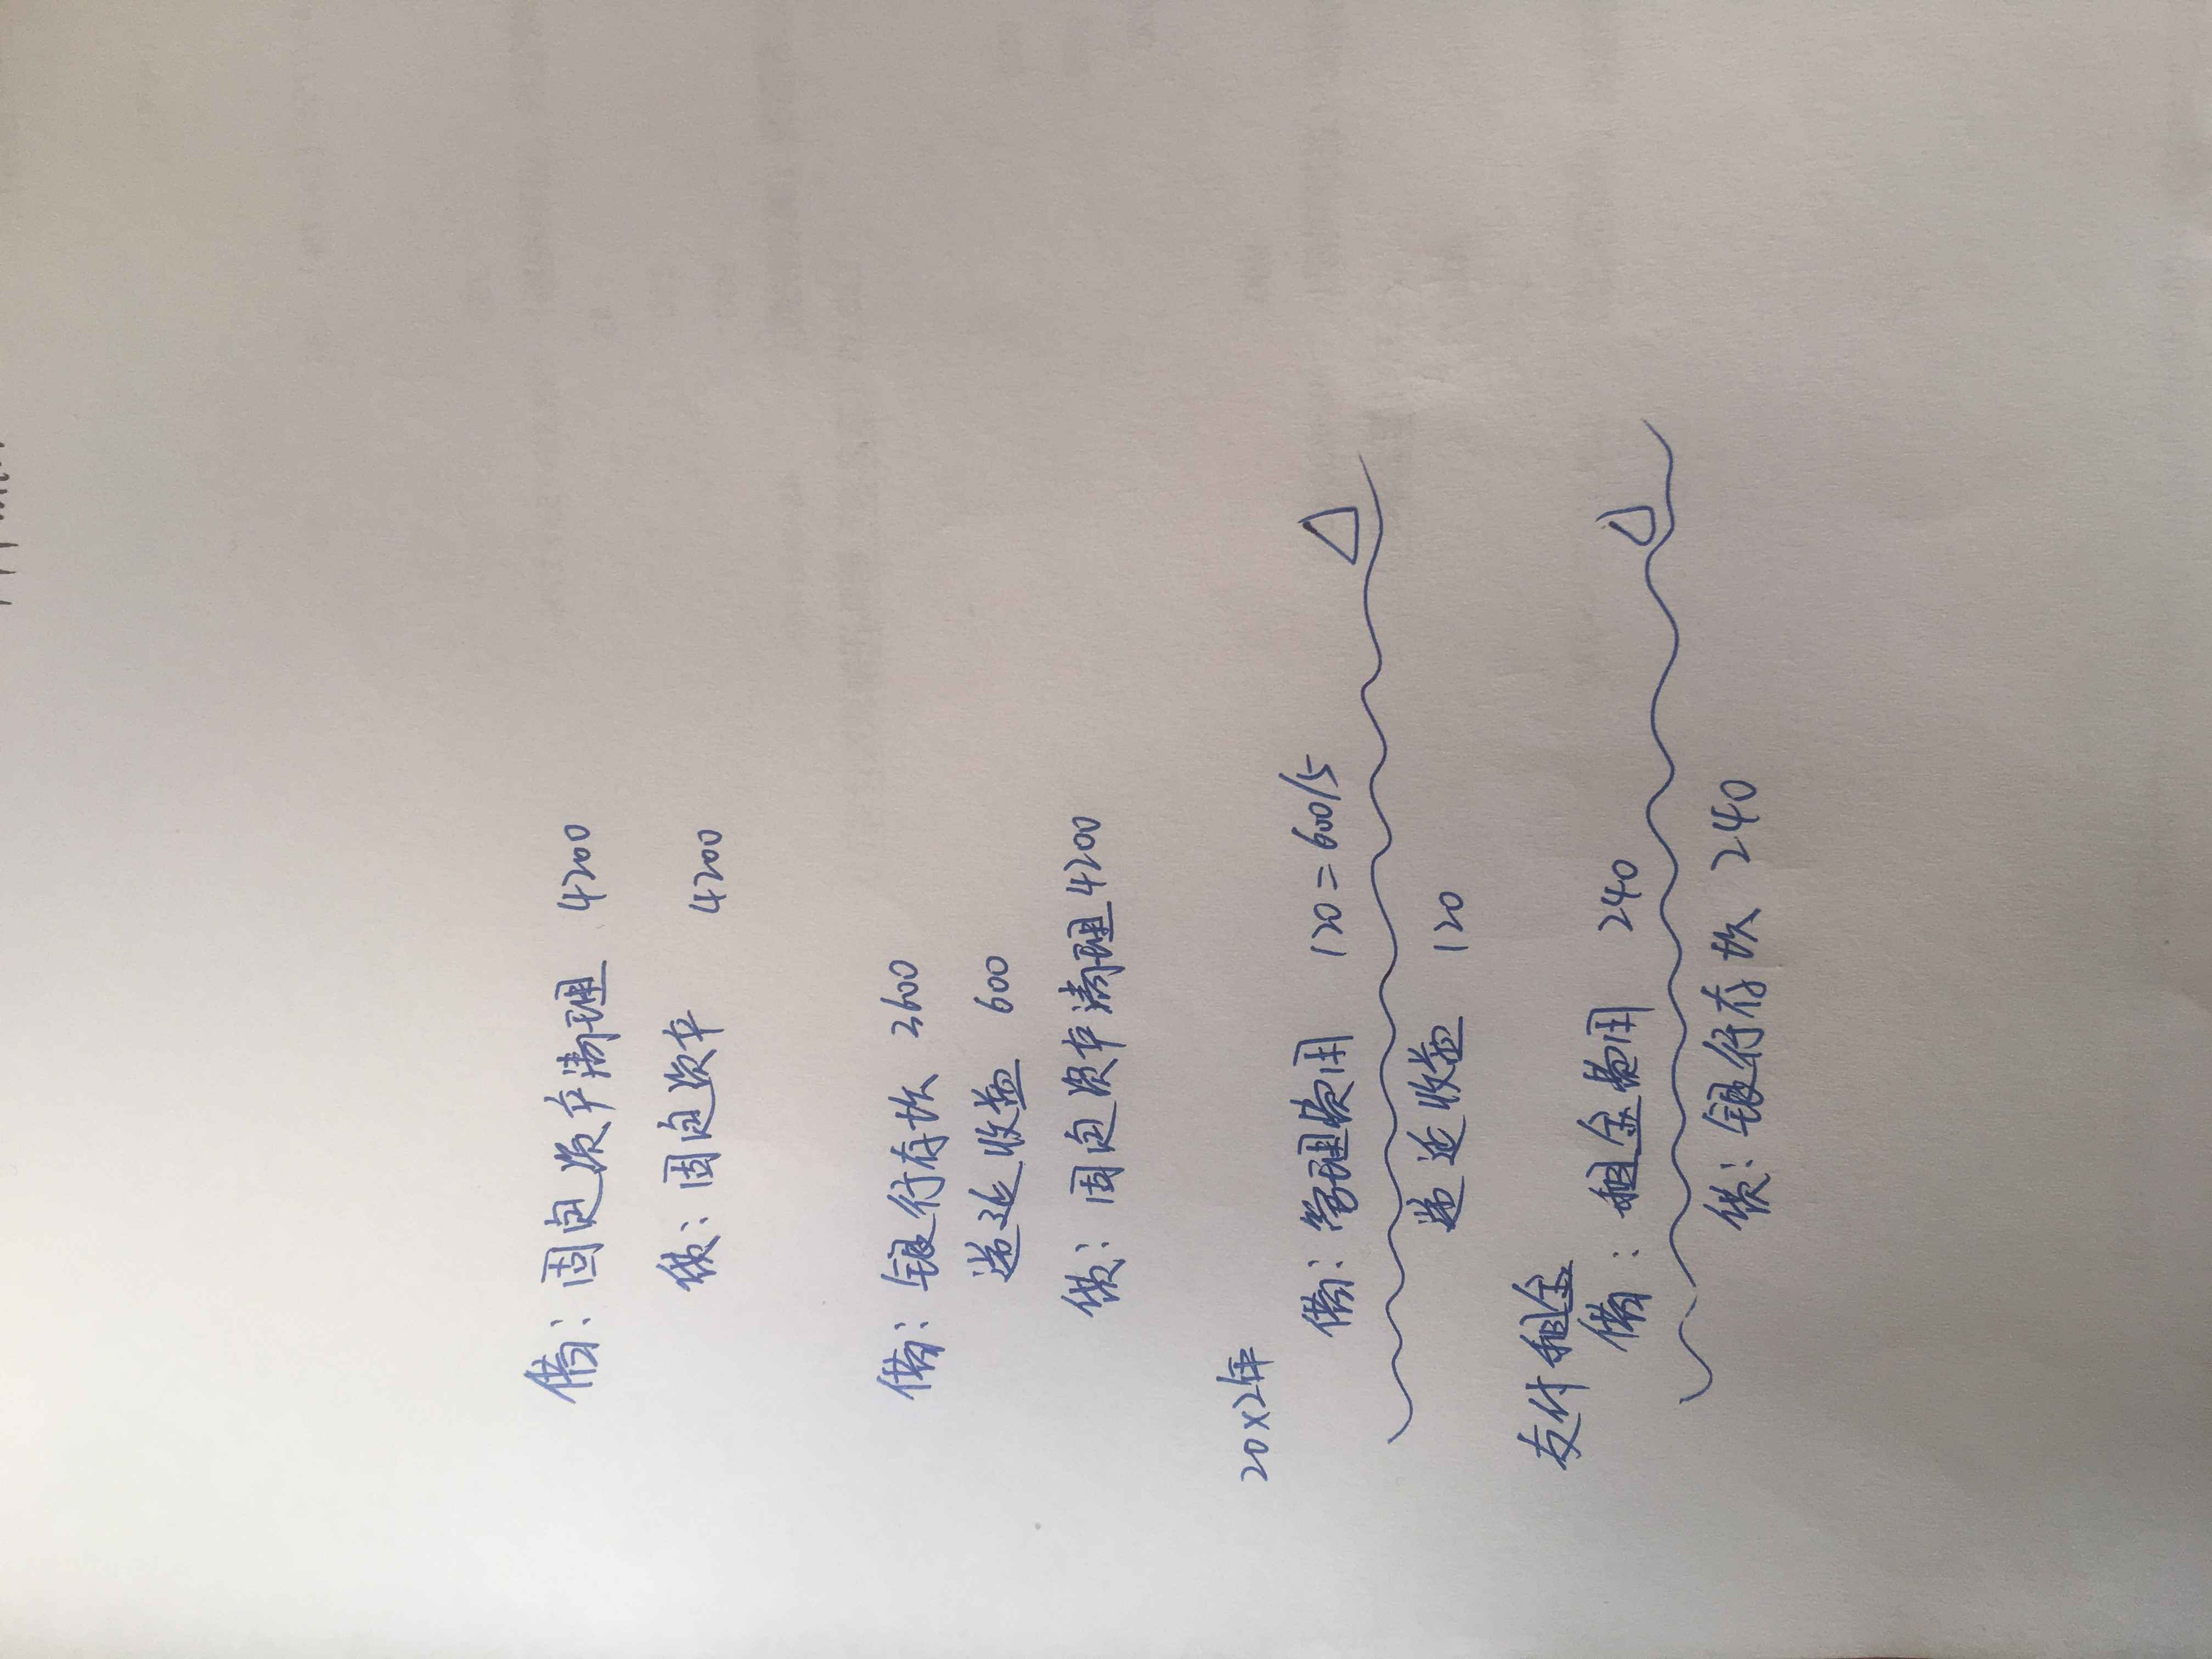 借：固定资产清理 4200
贷：固定资产 4200
借：银行存款 3600
递延收益 600
贷：固定资产清理 4200
20×2年
借：管理费用 120=600/5
递延收益 120
支付租金
借：租金费用 240
贷：银行存款 240